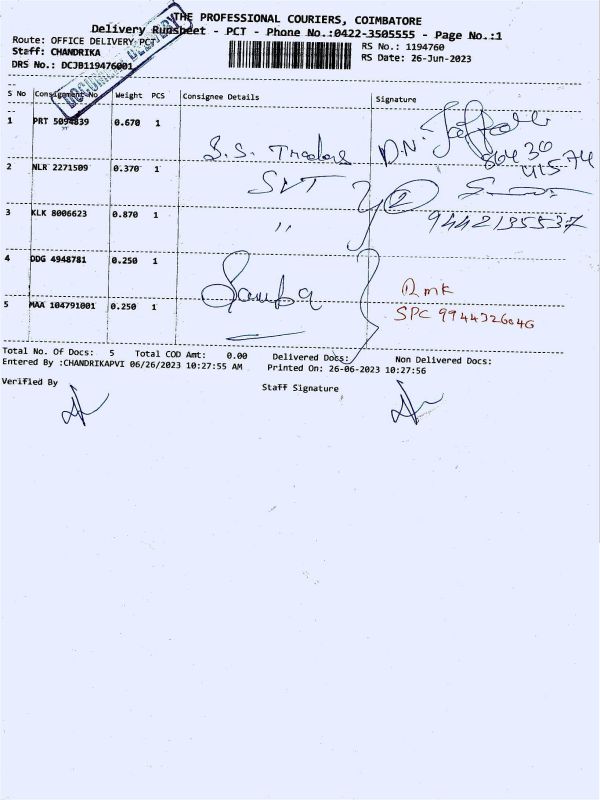 THE PROFESSIONAL COURIERS, COIMBATORE
Delivery Runsheet - PCT - Phone No.:0422-3505555 - Page No.:1
Route: OFFICE DELIVERY PCT
RS No.: 1194760
Staff: CHANDRIKA
RS Date: 26-Jun-2023
DRS No.: DCJB119476001
S No Consignment No Weight PCS Consignee Details Signature
1 PRT 5094839 0.670 1
S.S. Traders D.N.
86430
41574
2 NLR 2271509 0.370 1
SVT 2
3 KLK 8006623 0.870 1
" 9442135537
4 DDG 4948781 0.250 1
Rmk
5 MAA 104791001 0.250 1
SPC 9944326046
Total No. Of Docs: 5 Total COD Amt: 0.00 Delivered Docs: Non Delivered Docs:
Entered By :CHANDRIKAPVI 06/26/2023 10:27:55 AM Printed On: 26-06-2023 10:27:56
Verified By Staff Signature